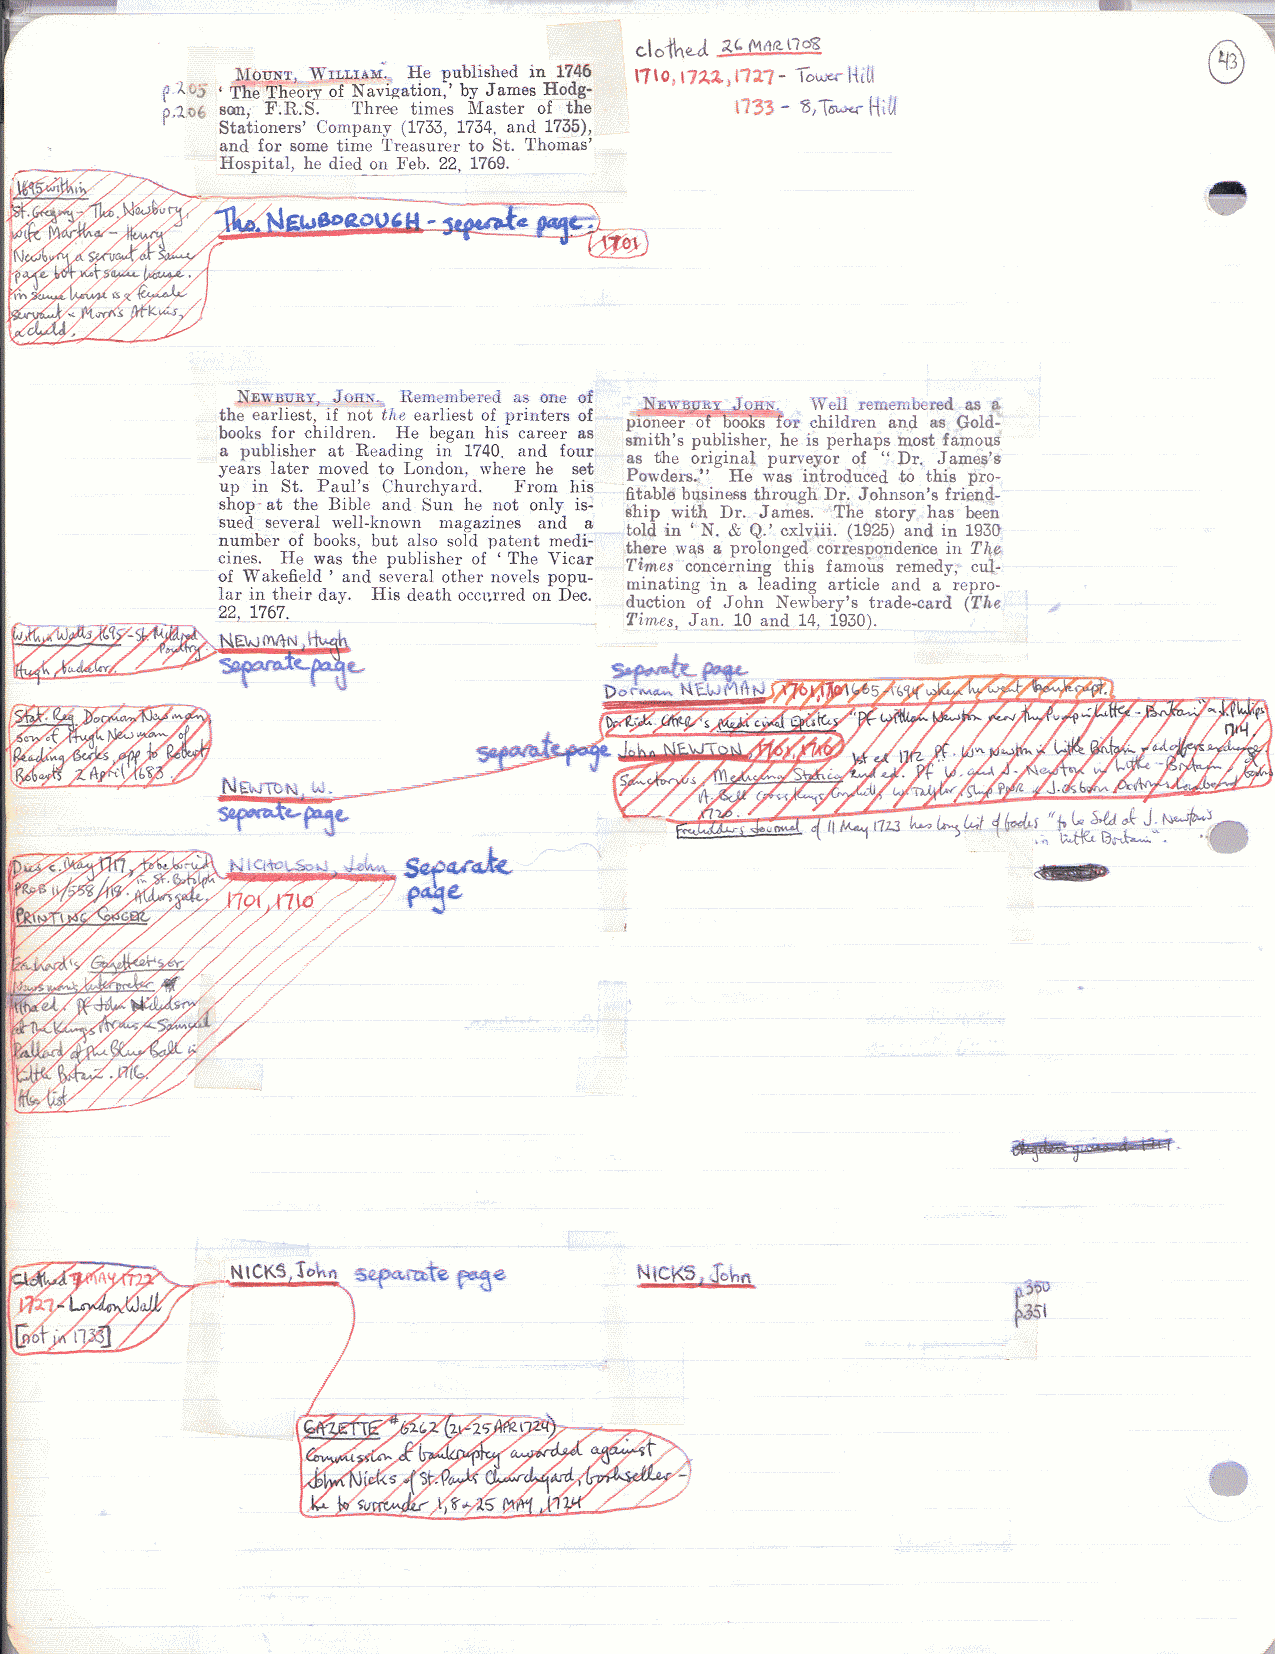 43
clothed 26 MAR 1708
1710, 1722, 1727 - Tower Hill
1733 - 8, Tower Hill
p.205
p.206
MOUNT, WILLIAM. He published in 1746
‘ The Theory of Navigation,’ by James Hodg-
son, F.R.S. Three times Master of the
Stationers’ Company (1733, 1734, and 1735),
and for some time Treasurer to St. Thomas’
Hospital, he died on Feb. 22, 1769.
1695 within
St. Gregory - Tho. Newbury,
wife Martha - Henry
Newbury a servant at same
page but not same house.
in same house is a female
servant & Morris Atkins,
a child.
Tho. NEWBOROUGH - seperate page.
1701
NEWBURY, JOHN. Remembered as one of
the earliest, if not the earliest of printers of
books for children. He began his career as
a publisher at Reading in 1740, and four
years later moved to London, where he set
up in St. Paul’s Churchyard. From his
shop at the Bible and Sun he not only is-
sued several well-known magazines and a
number of books, but also sold patent medi-
cines. He was the publisher of ‘ The Vicar
of Wakefield ’ and several other novels popu-
lar in their day. His death occurred on Dec.
22, 1767.
NEWBURY JOHN. Well remembered as a
pioneer of books for children and as Gold-
smith’s publisher, he is perhaps most famous
as the original purveyor of “ Dr. James’s
Powders.” He was introduced to this pro-
fitable business through Dr. Johnson’s friend-
ship with Dr. James. The story has been
told in ‘ N. & Q.’ cxlviii. (1925) and in 1930
there was a prolonged correspondence in The
Times concerning this famous remedy, cul-
minating in a leading article and a repro-
duction of John Newbery’s trade-card (The
Times, Jan. 10 and 14, 1930).
Within Walls 1695 - St. Mildred
Poultry.
Hugh, bachelor.
NEWMAN, Hugh
separate page
separate page
Dorman NEWMAN, 1701, 1701 1665-1694 when he went bankrupt.
Stat. Reg Dorman Newman
son of Hugh Newman of
Reading Berks, app to Robert
Roberts 2 April 1683.
Dr. Rich. CARR's Medicinal Epistles "Pf William Newton near the Pump in Little-Britain" & J. Phillips
1714.
separate page John NEWTON, 1701, 1710
1st ed 1712 Pf. Wm Newton in Little Britain and offers exchange of
Sanctorius, Medicina Statica 2nd ed. Pf W. and J. Newton in Little-Britain,
A. Bell Cross Keys Cornhill, W. Taylor, Ship PNR & J. Osborn Oxf Arms Lombard
1720.
Freeholders Journal of 11 May 1723 has long list of books "to be Sold at J. Newton's
in Little Britain".
NEWTON, W.
separate page
Dies c. May 1717, to be buried
in St. Botolph
PROB 11/558/118. Aldersgate.
PRINTING CONGER
NICHOLSON, John separate
page
1701, 1710
Echard's Gazetteer's or
Newsman's Interpreter
11th ed. Pf John Nicholson
at the Kings Arms & Samuel
Ballard at the Blue Ball in
Little Britain. 1716.
Also list
Clothed 7 MAY 1722
1727 - London Wall
[not in 1733]
NICKS, John separate page
NICKS, John
p350
p351
GAZETTE #6262 (21-25 APR 1724)
Commission of bankruptcy awarded against
John Nicks of St. Pauls Churchyard, bookseller -
he to surrender 1, 8 & 25 MAY, 1724